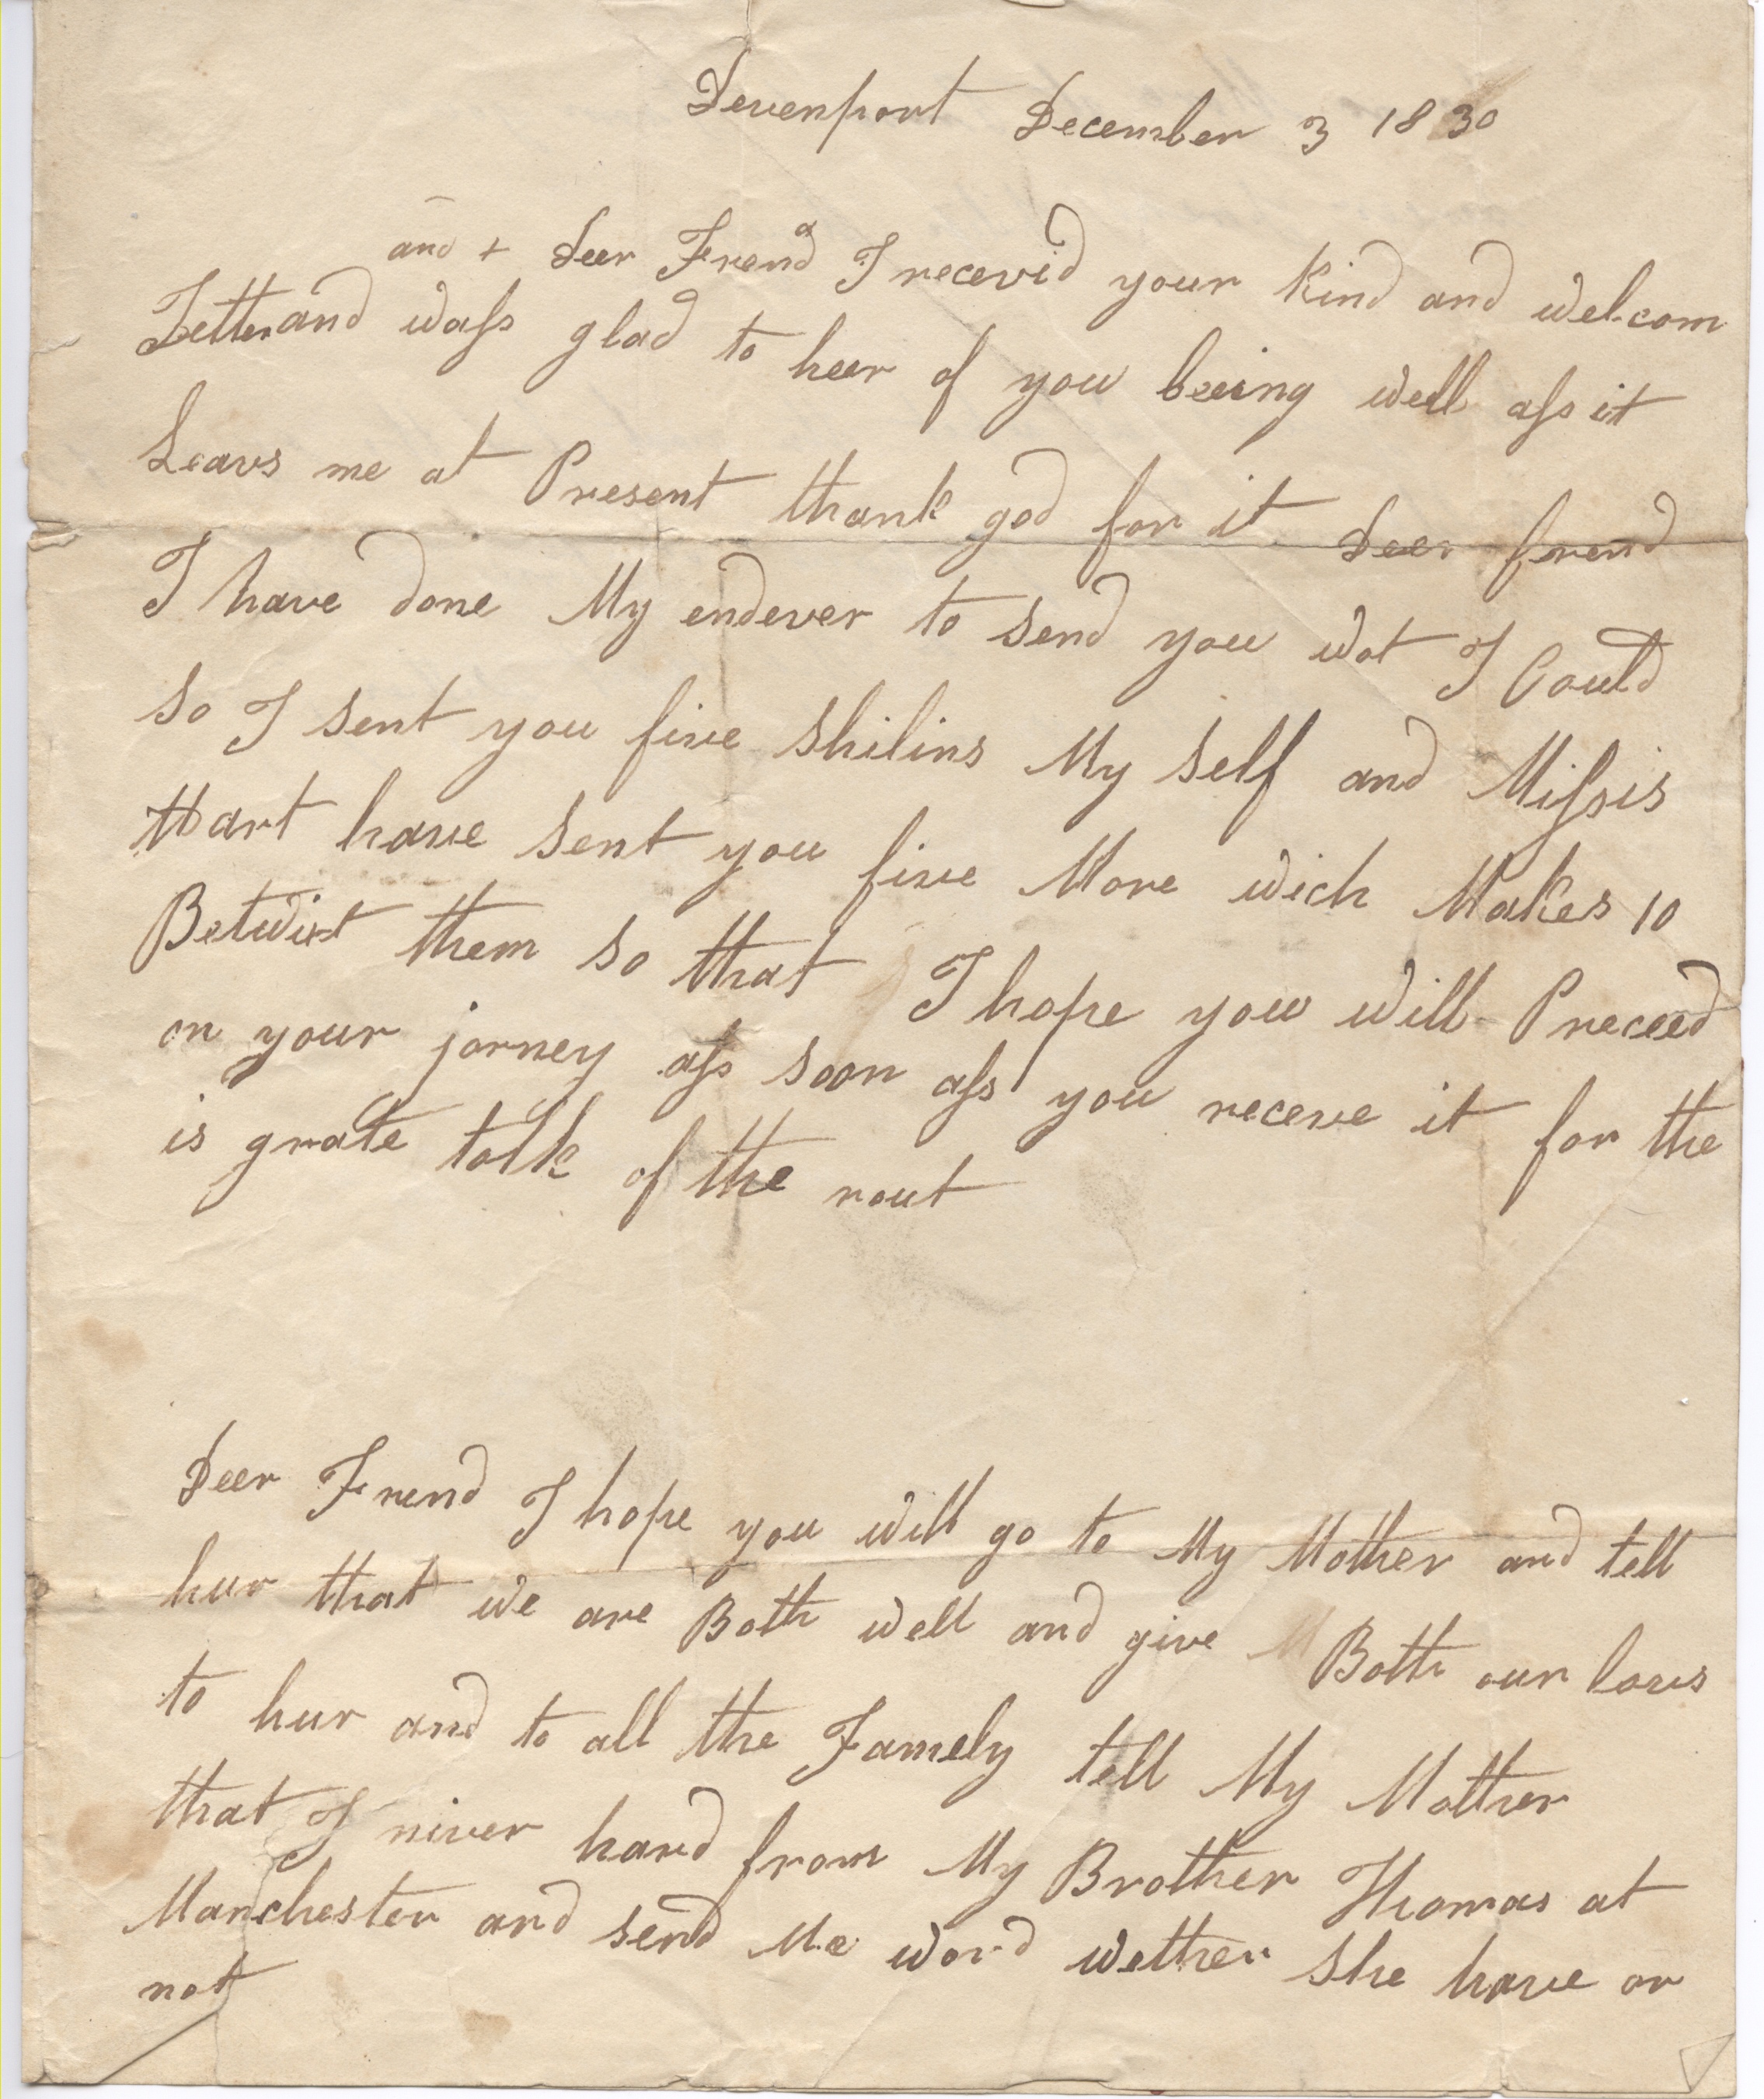 Devenport December 3 1830
and + Deer Frend I recevid your kind and welcom
Letter and wass glad to heer of you beeing well ass it
Leavs me at Present thank god for it Deer frend
I have done My endever to send you wot I Could
so I sent you five shilins My self and Missis
Hart have sent you five More wich Makes 10
Betwixt them so that I hope you will Preceed
on your jorney ass soon ass you receve it for the
is grate talk of the rout
Deer Frend I hope you will go to My Mother and tell
hur that we are Both well and give Both our loves
to hur and to all the Famely tell My Mother
that I niver hard from My Brother Thomas at
Manchester and send Me word wether she have or
not